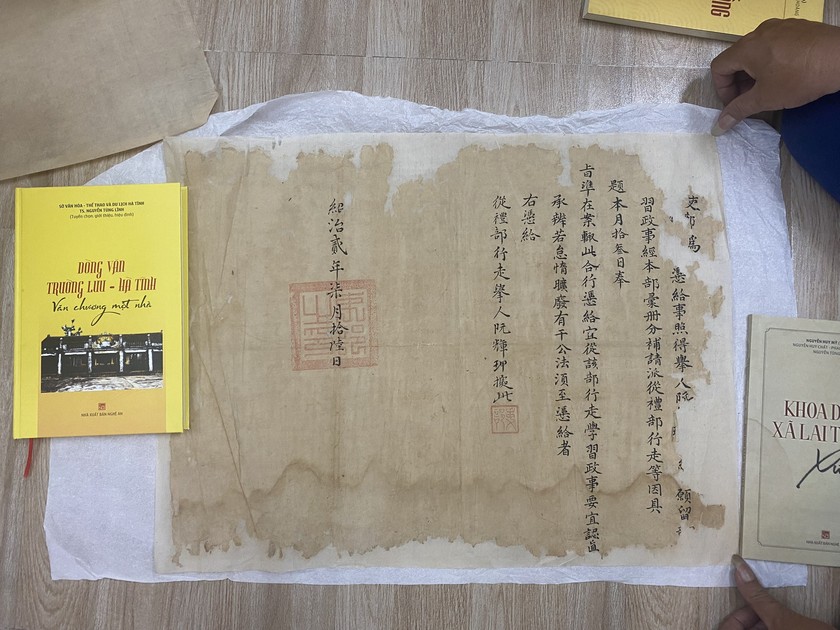 SỞ VĂN HÓA - THỂ THAO VÀ DU LỊCH HÀ TĨNH
TS. NGUYỄN TÙNG LĨNH
(Tuyển chọn, giới thiệu, hiệu đính)
DÒNG VĂN
TRƯỜNG LƯU - HÀ TĨNH
Văn chương một nhà
NHÀ XUẤT BẢN NGHỆ AN
吏部為
憑給事照得舉人阮 願留
習政事經本部彙册分補請派從禮部行走等因具
題本月拾叁日奉
旨準在案輙此合行憑給宜從該部行走學習政事要宜認真
承辨若怠惰曠廢有干公法須至憑給者
右憑給
從禮部行走舉人阮輝 據此
紹治貳年柒月拾陸日
NGUYỄN HUY MỸ
NGUYỄN HUY CHẤT
NGUYỄN TÙNG
KHOA D
XÃ LAI T
NHÀ XUẤT BẢN